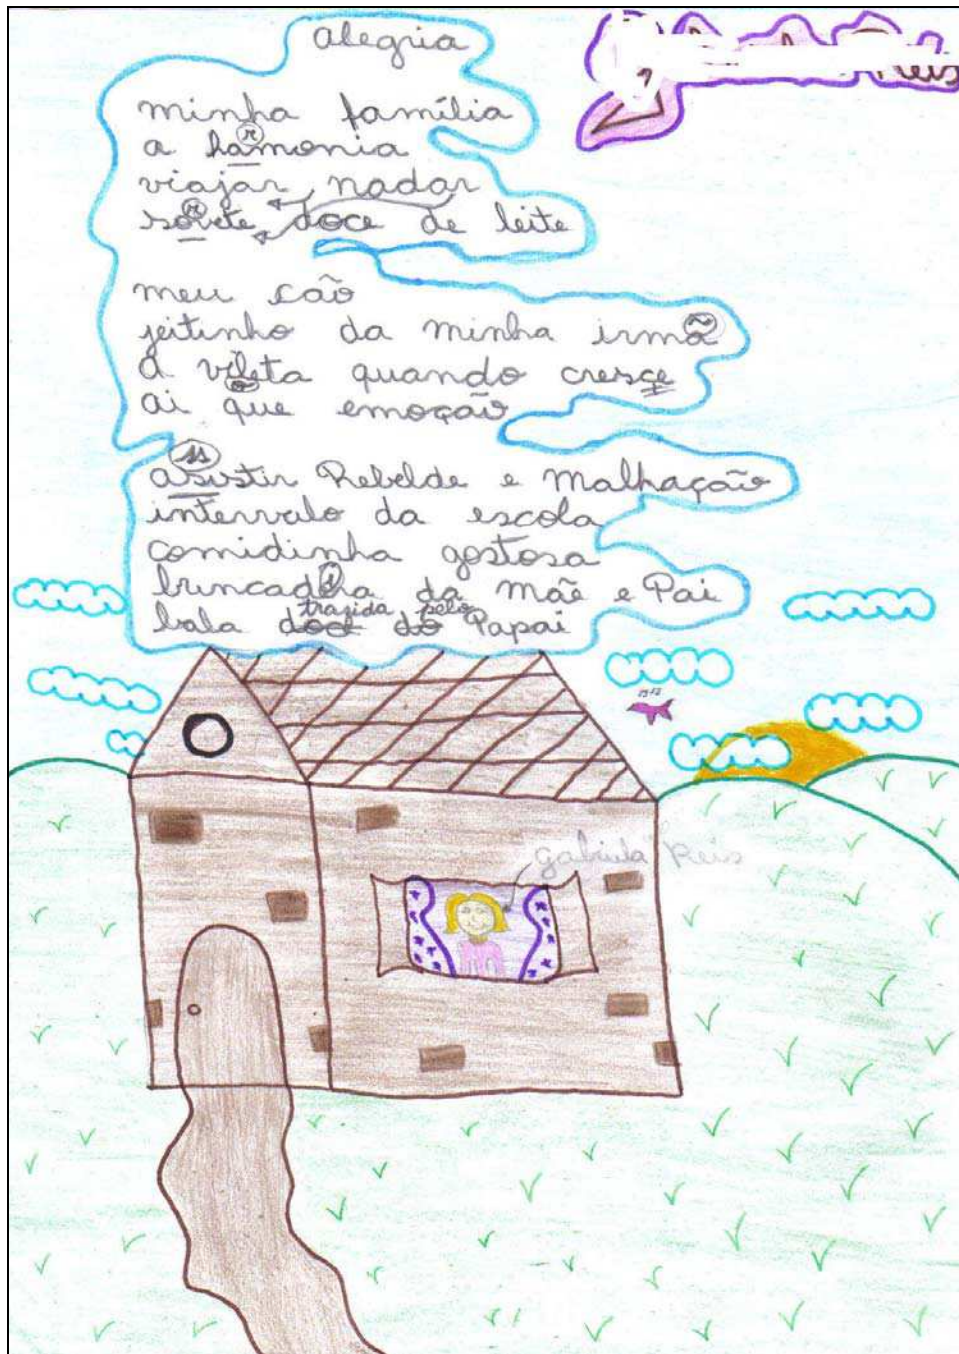 Alegria
Reis
minha família
a hamonia
r
viajar nadar
sovete doce de leite
r
meu cão
jeitinho da minha irmã
a vileta quando cresçe
o
ai que emoção
asistir Rebelde e Malhação
ss
intervalo da escola
comidinha gostosa
brincadera da mãe e Pai
i
trazida pelo
bala doce do Papai
Gabriela Reis